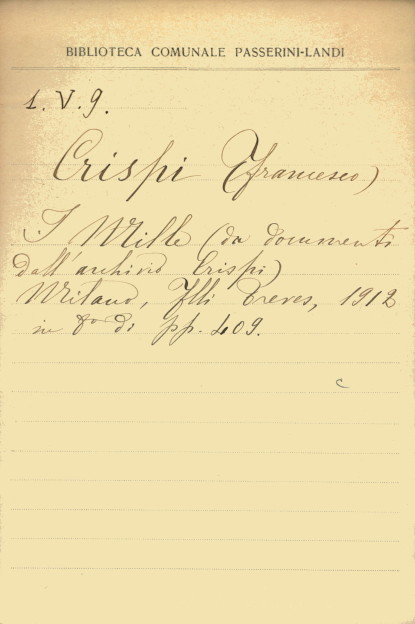 BIBLIOTECA COMUNALE PASSERINI-LANDI
1. V. 9.
Crispi (Francesco)
I Mille (da documenti
dall'archivio Crispi)
Milano, Flli Treves, 1912
in 8° di pp. 409.
c